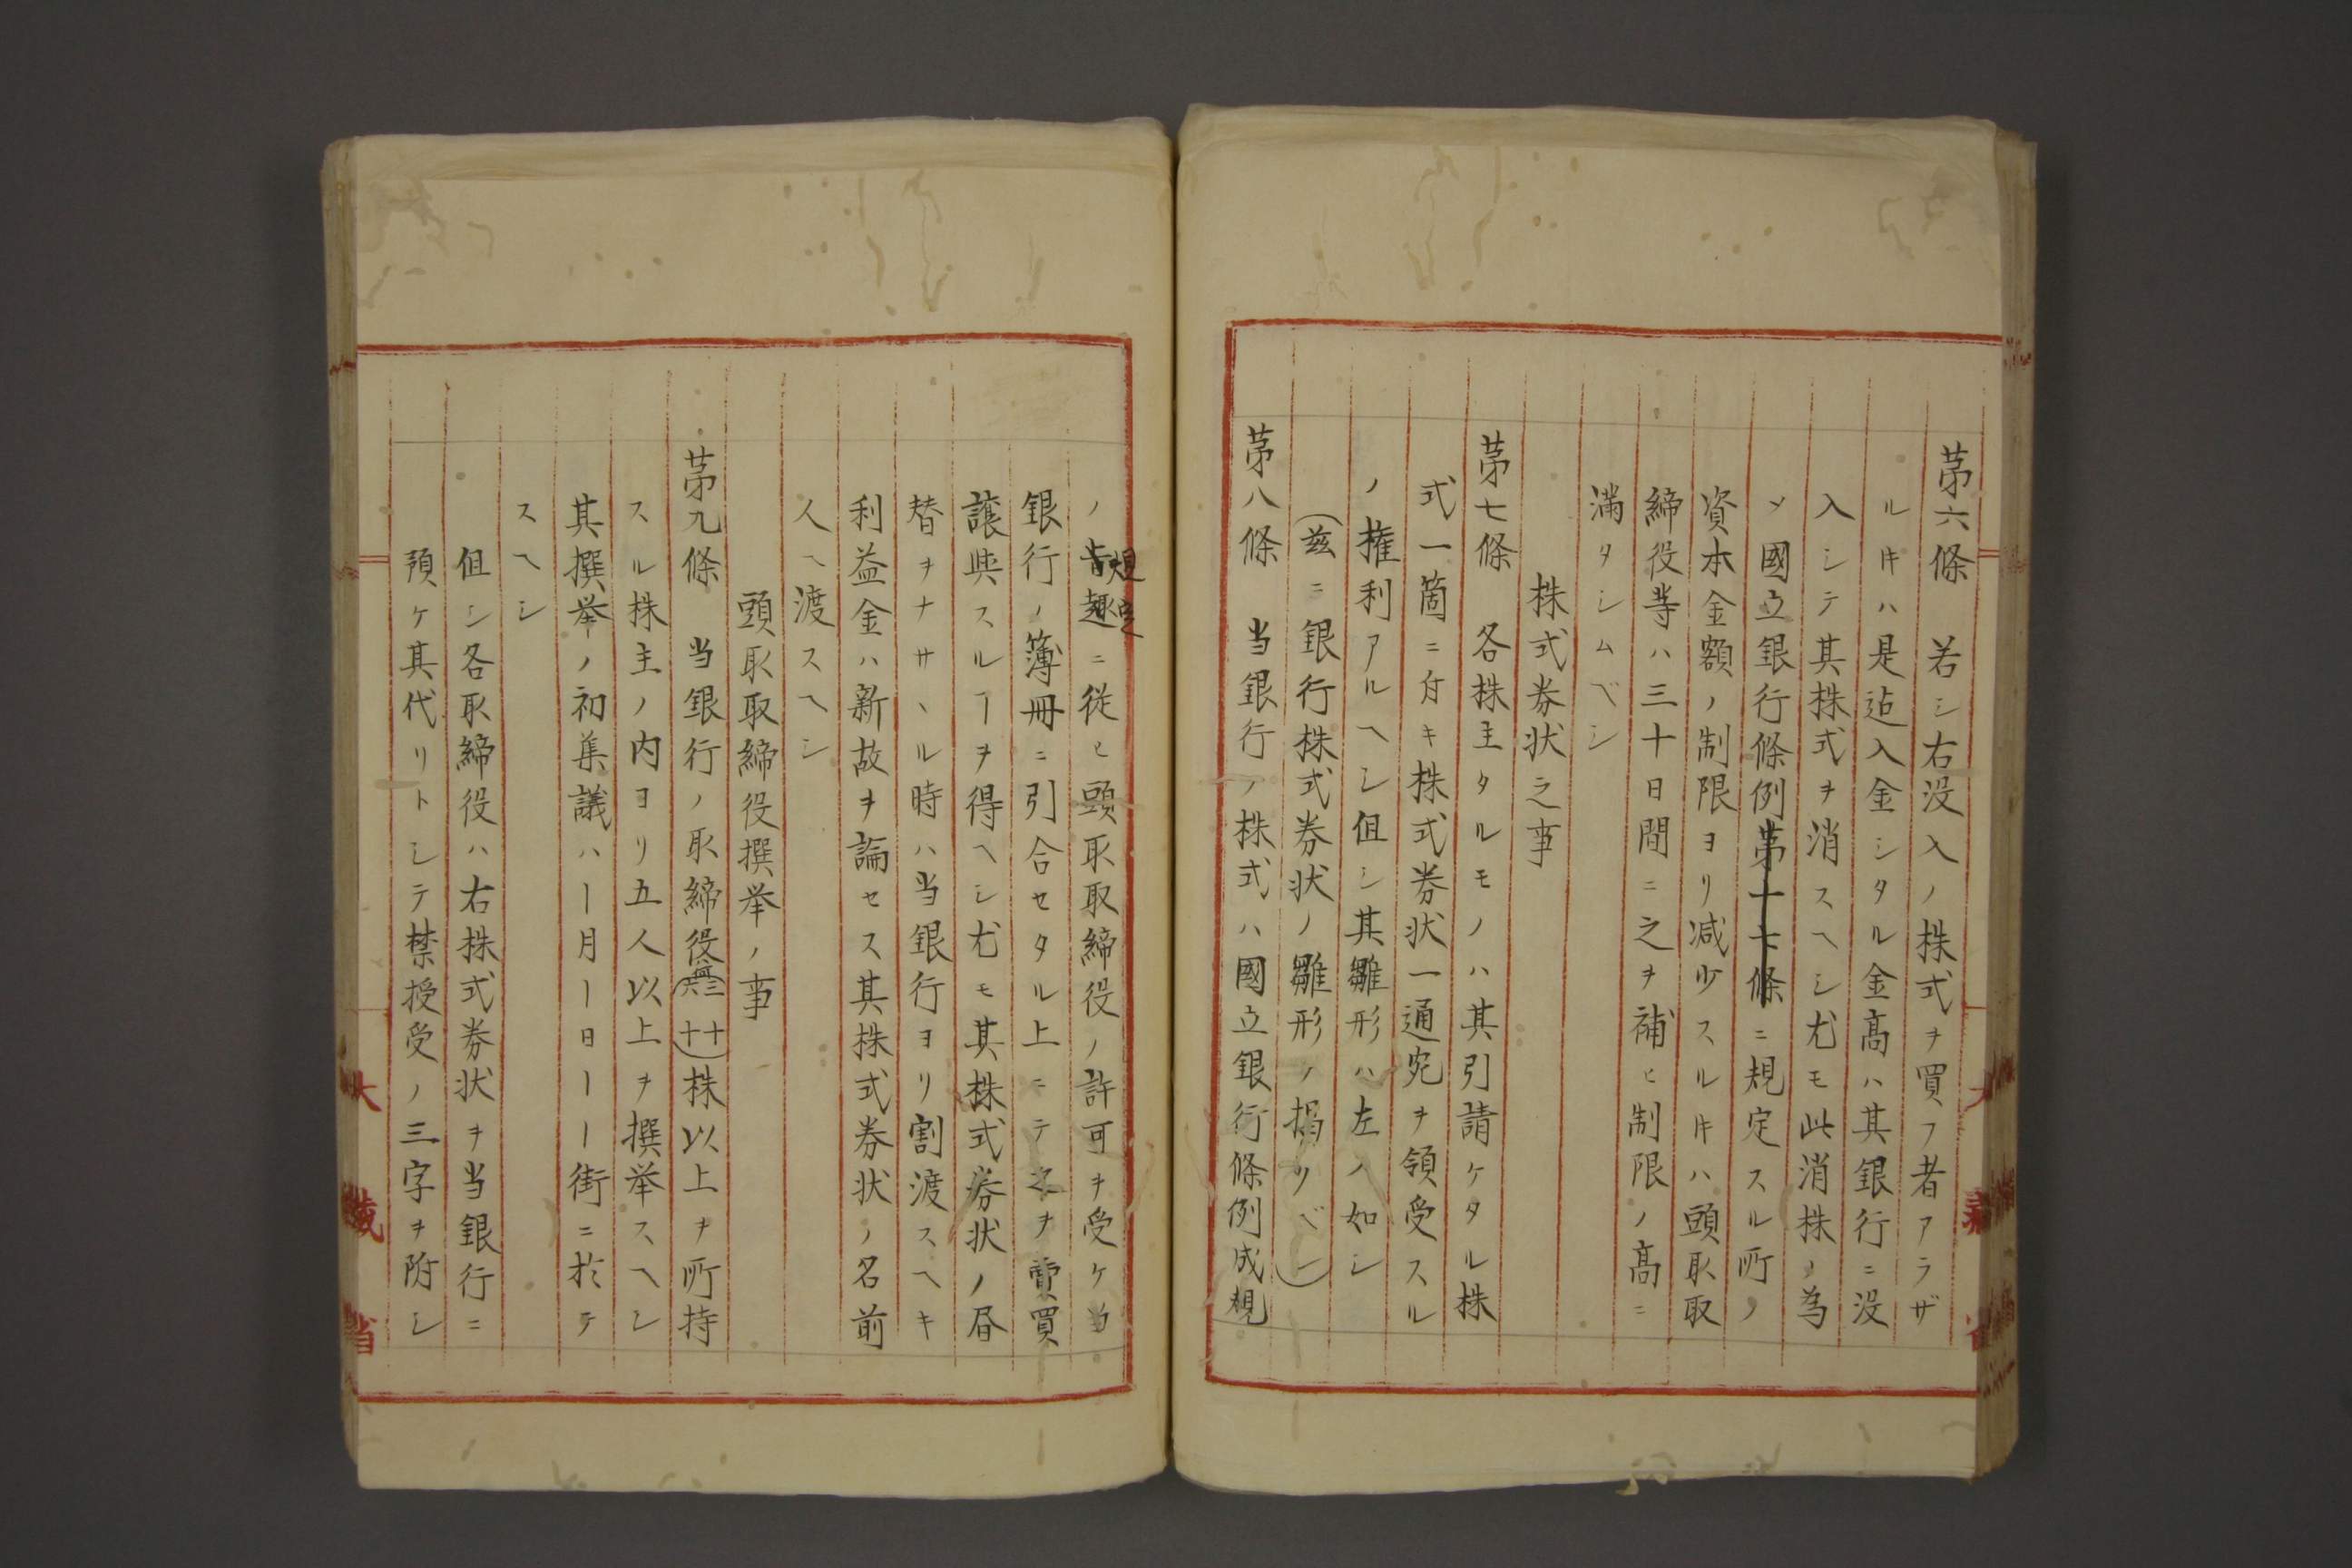 第六條　若シ右没入ノ株式ヲ買フ者アラザ
ルキハ是迠入金シタル金髙ハ其銀行ニ没
入シテ其株式ヲ消スヘシ尤モ此消株ノ為
メ國立銀行條例第十七條ニ規定スル所ノ
資本金額ノ制限ヨリ减少スルキハ頭取取
締役等ハ三十日間ニ之ヲ補ヒ制限ノ髙ニ
満タシムベシ
株式券状之事
第七條　各株主タルモノハ其引請ケタル株
式一箇ニ付キ株式券状一通宛ヲ領受スル
ノ権利アルヘシ但シ其雛形ハ左ノ如シ
（茲ニ銀行株式券状ノ雛形ノ掲クベシ）
第八條　当銀行ノ株式ハ國立銀行條例成規
ノ旨趣ニ従ヒ頭取取締役ノ許可ヲ受ケ当
規定
銀行ノ簿冊ニ引合セタル上ニテ之ヲ賣買
譲與スルヿヲ得ヘシ尤モ其株式券状ノ昼
替ヲナサヽル時ハ当銀行ヨリ割渡スヘキ
利益金ハ新故ヲ論セス其株式券状ノ名前
人ヘ渡スヘシ
頭取取締役撰挙ノ事
第九條　当銀行ノ取締役（三十六十）株以上ヲ所持
スル株主ノ内ヨリ五人以上ヲ撰挙スヘシ
其撰挙ノ初集議ハ｜月｜日｜｜街ニ於テ
スヘシ
但シ各取締役ハ右株式券状ヲ当銀行ニ
預ケ其代リトシテ禁授受ノ三字ヲ附シ
大藏省
大藏省